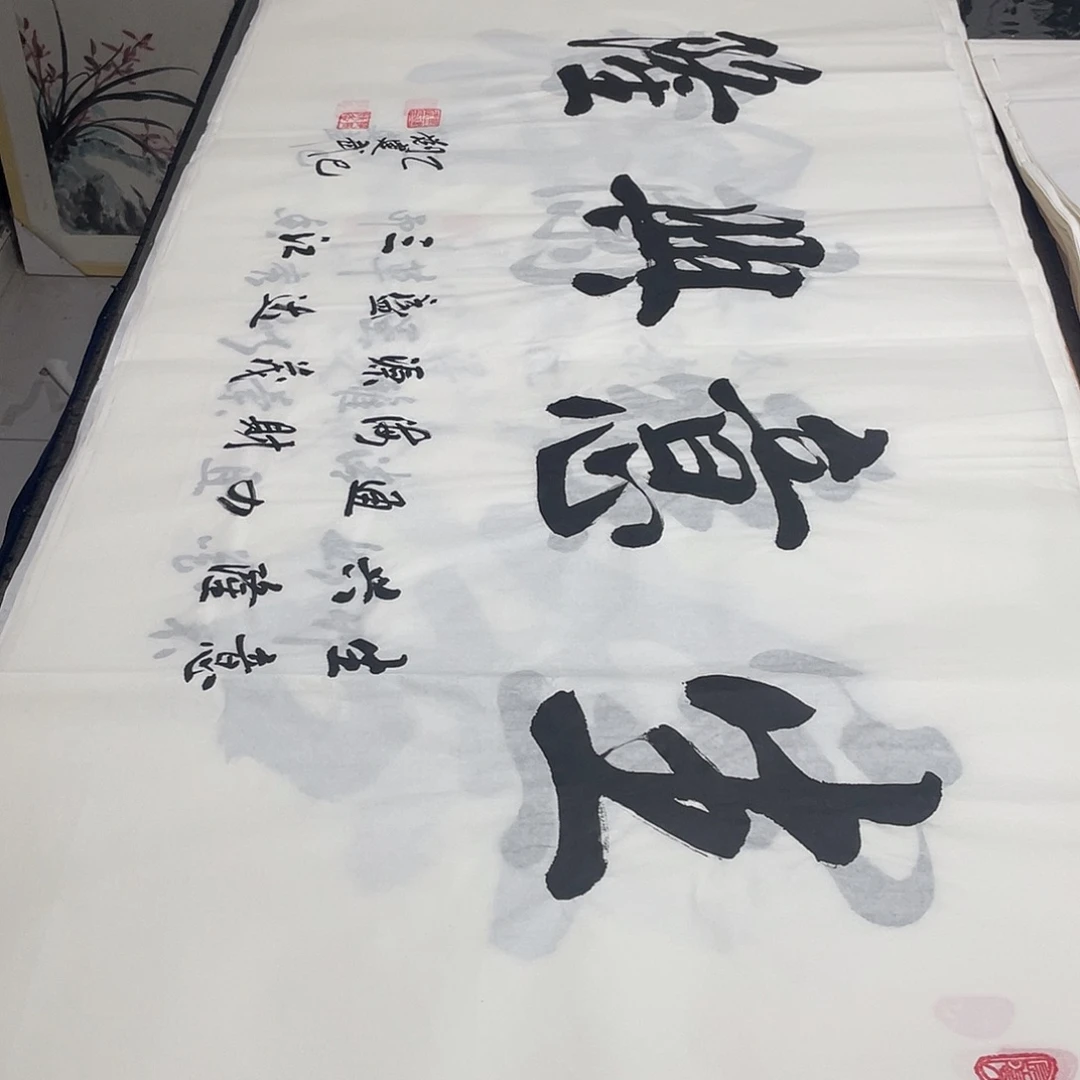 生意興隆
生意
兴隆
通四
海財
源茂
盛達
三江
乙巳